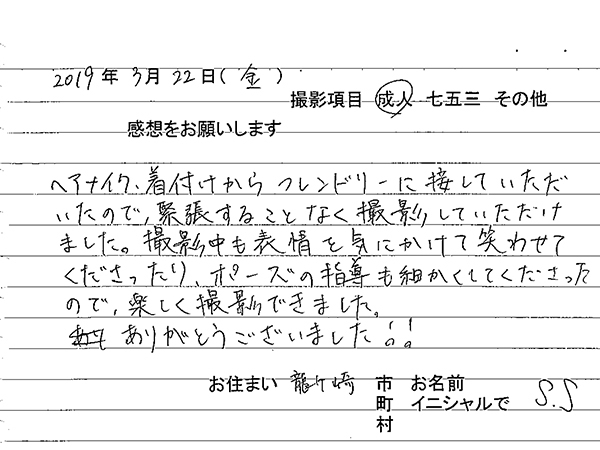 2019年 3月 22日(金)
撮影項目 成人 七五三 その他
感想をお願いします
ヘアメイク、着付けからフレンドリーに接していただ
いたので、緊張することなく撮影していただけ
ました。撮影中も表情を気にかけて笑わせて
くださったり、ポーズの指導も細かくしてくださった
ので、楽しく撮影できました。
ありがとうございました!!
お住まい 龍ケ崎 市 お名前
町 イニシャルで S.S
村